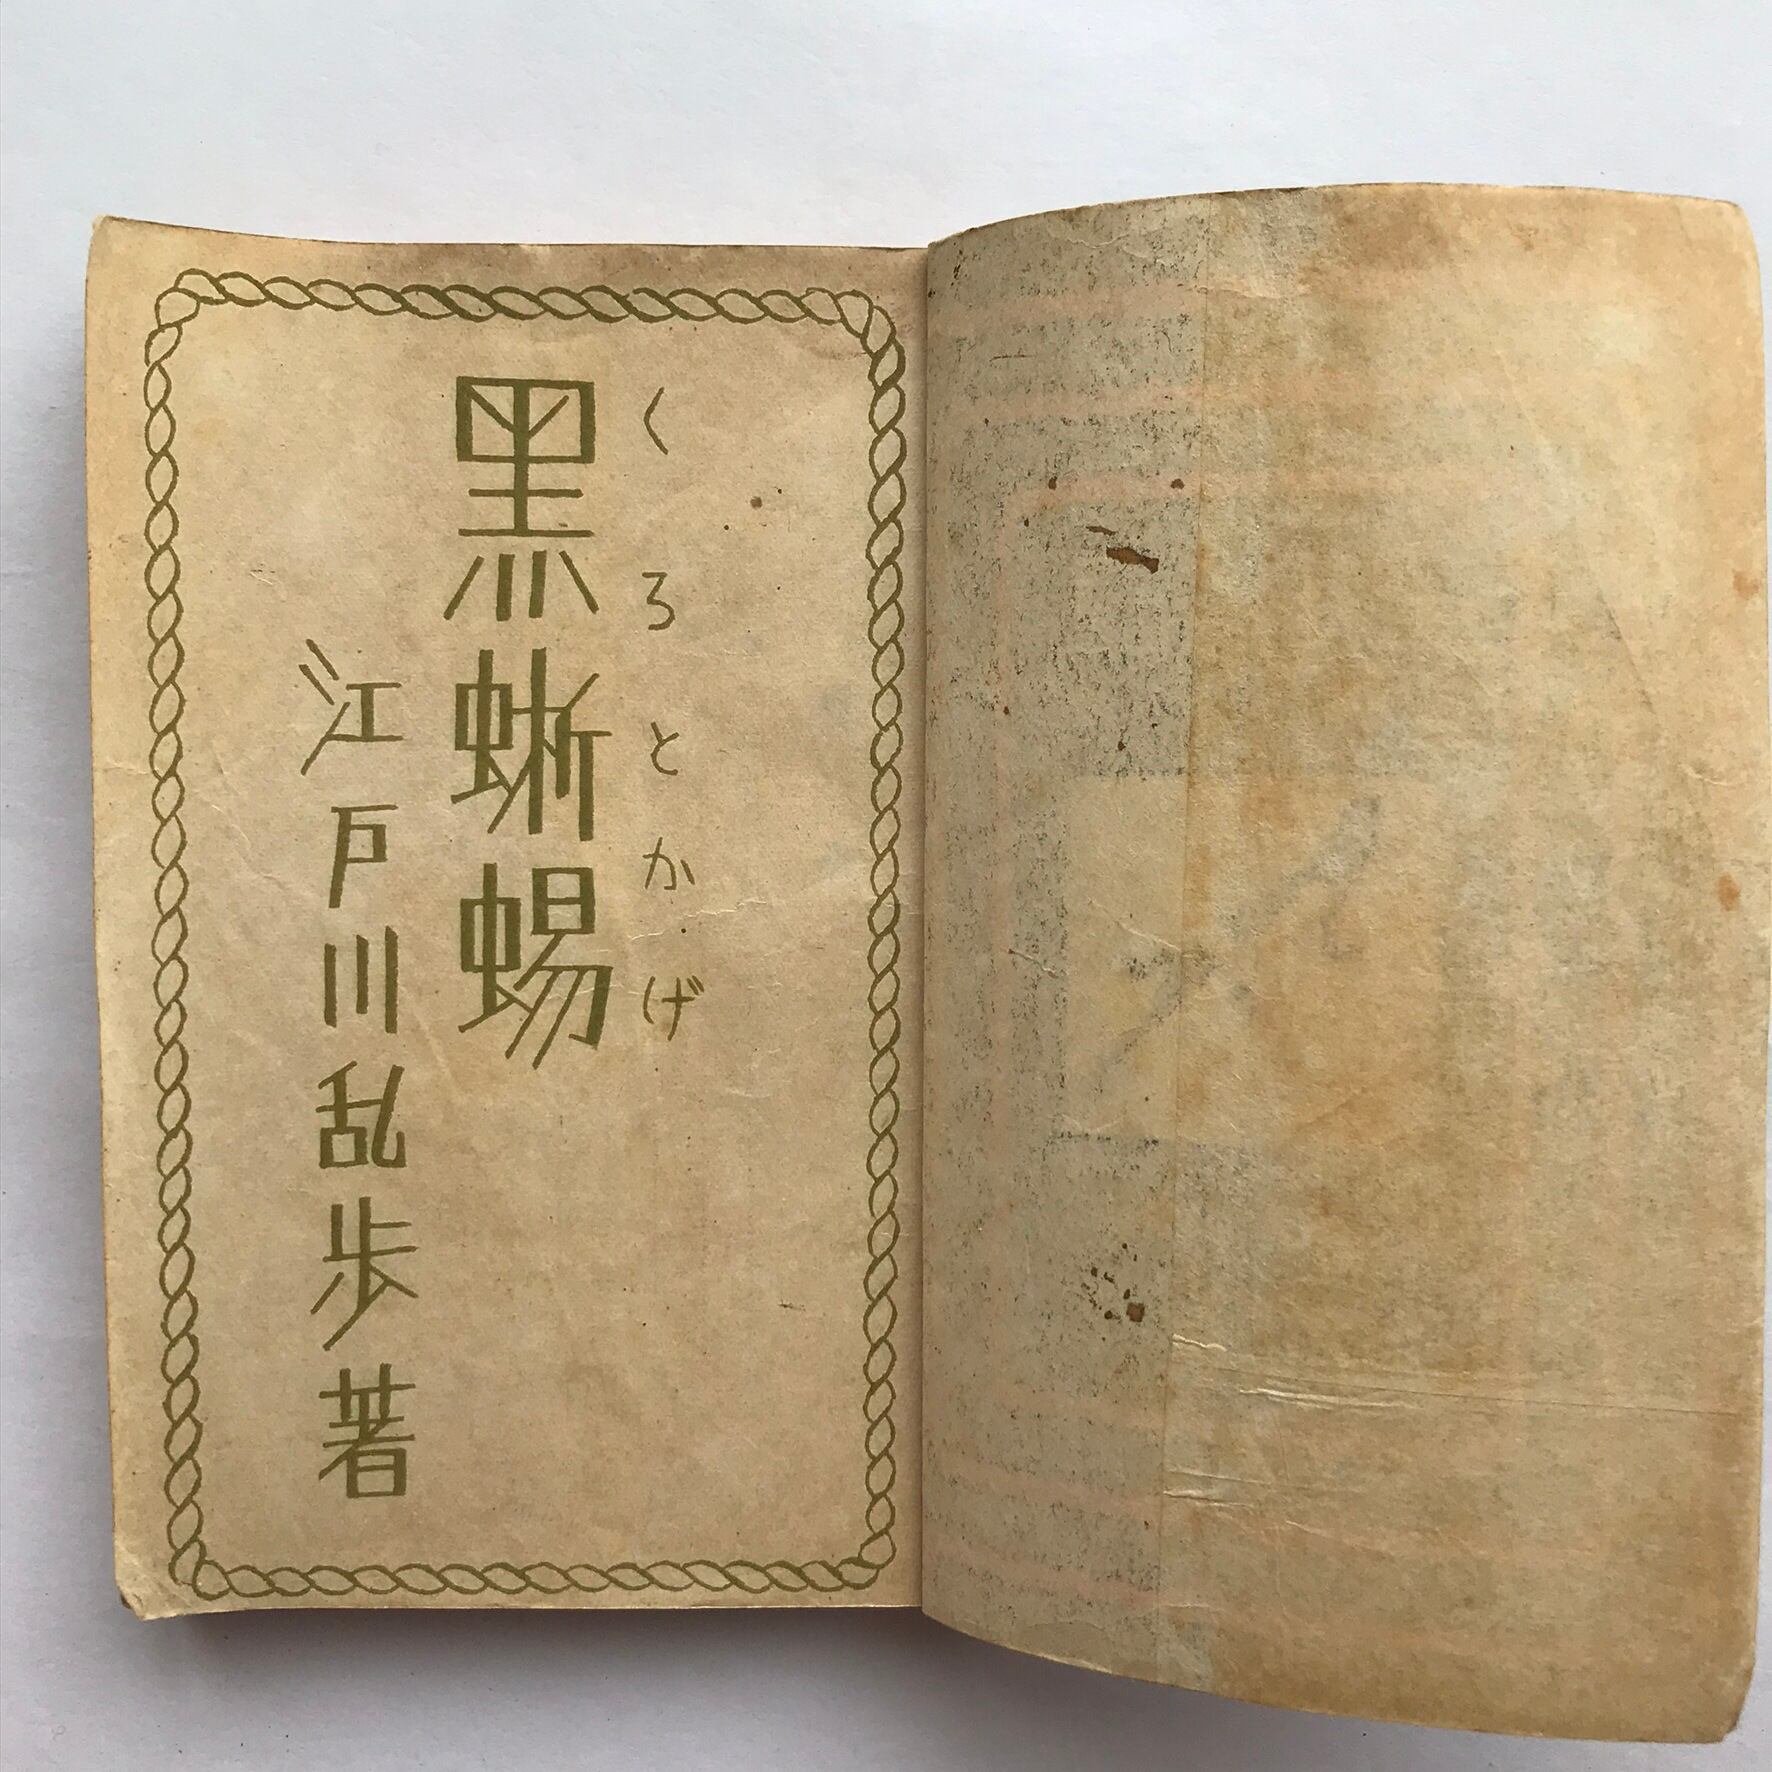 くろとかげ
黑蜥蜴
江戸川乱歩著